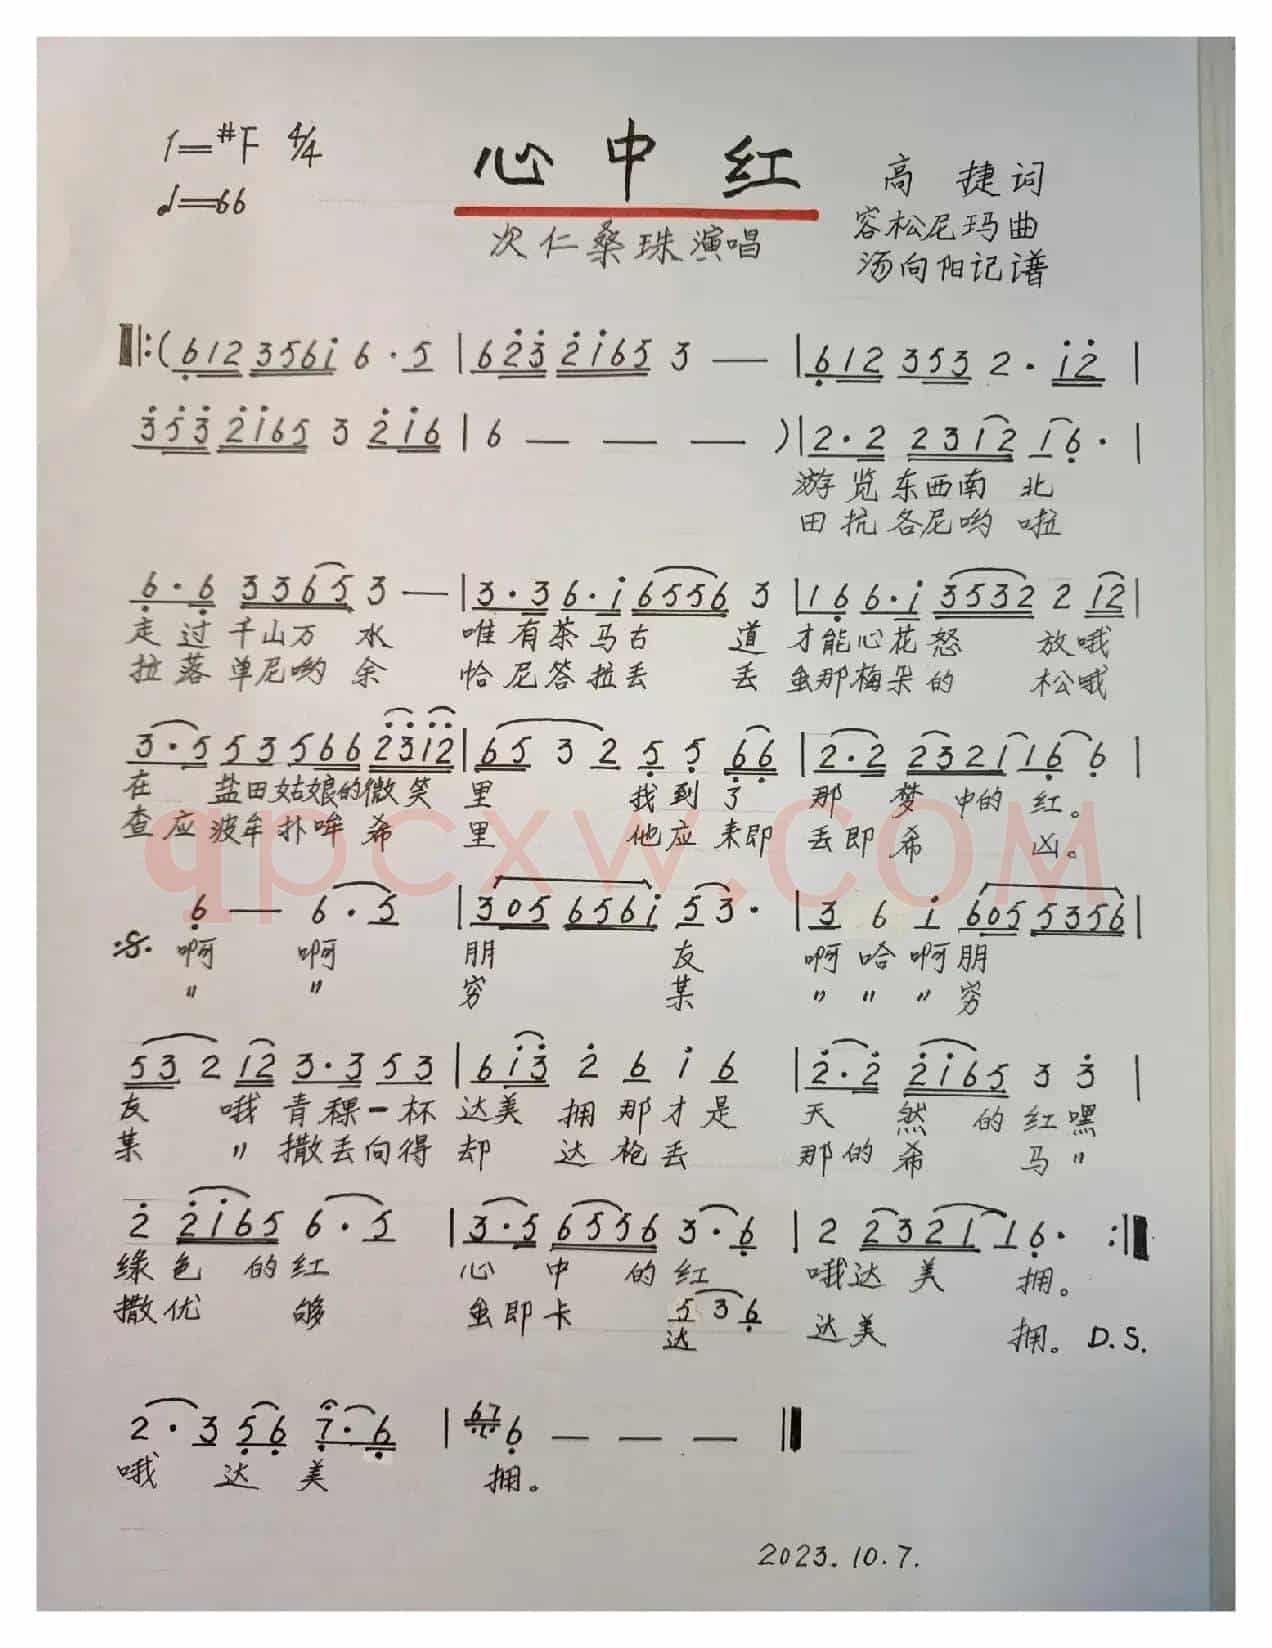 1=#F 4/4
心中红
高 捷词
♩=66
容松尼玛曲
次仁桑珠演唱
汤向阳记谱
‖:(612 356i 6·5 | 623 2i65 3 — | 612 353 2·i2 |
353 2i65 3 2i6 | 6 — — — )| 2·2 2312 16· |
游览东西南 北
田抗各尼哟 啦
6·6 3365 3 — | 3·3 6·i 6556 3 | 16 6·i 3532 2 12 |
走过千山万 水 唯有茶马古 道 才能心花怒 放哦
拉落单尼哟 余 恰尼答拉丢 丢 虽那梅朵的 松哦
3·5 53 566 2312 | 65 3 2 5 5 66 | 2·2 2321 16 6 |
在 盐田姑娘的微笑 里 找到了 那 梦 中的 红。
查应波牟扑哞希 里 他应来即 丢即希 凶。
qpcxw.COM
6 — 6·5 | 305 656i 53· | 3 6 i 605 5356 |
𝄋 啊 啊 朋 友 啊哈啊朋
〃 〃 穷 某 〃 〃 〃 穷
53 2 12 3·3 53 | 6i3 2 6 i 6 | 2·2 2i65 3 3 |
友 哦 青稞一杯 达美 拥那才是 天 然 的红嘿
某 〃 撒丢向得 却 达枪丢 那的希 马〃
2 2i65 6·5 | 3·5 6556 3·6 | 2 2321 16· :‖
缘色 的红 心 中 的红 哦达 美 拥。
撒优 够 虽即卡 536
达 达美 拥。 D.S.
2·3 56 7·6 | 67 6 — — — ‖
哦 达 美 拥。
2023.10.7.